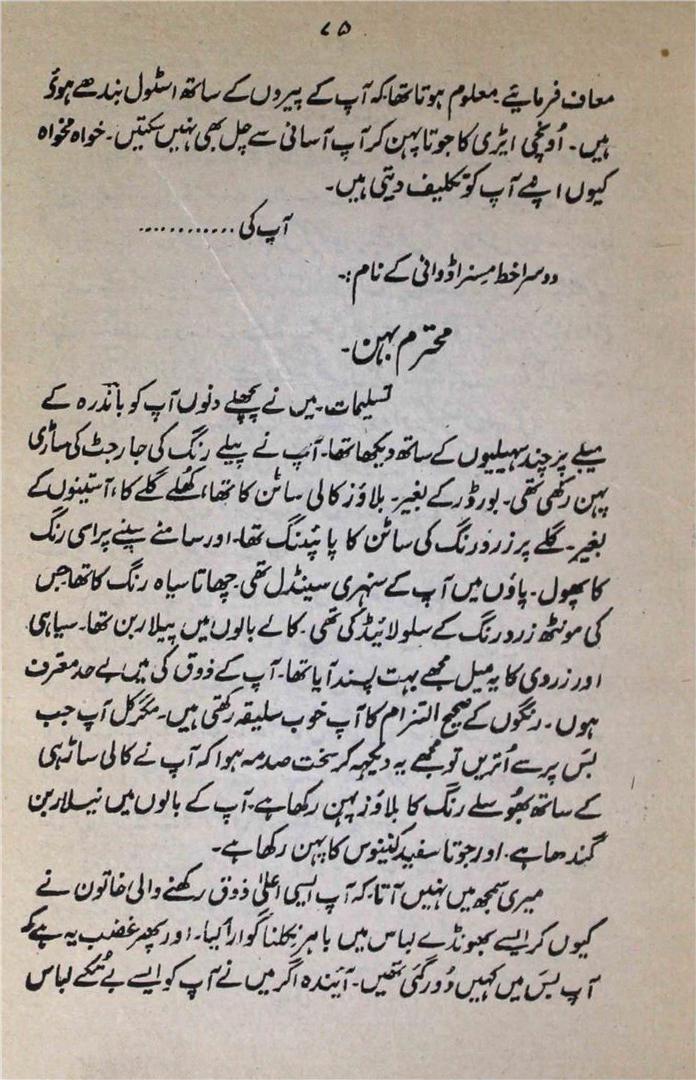 ۷۵
معاف فرمائیے معلوم ہوتا تھا کہ آپ کے پیروں کے ساتھ اسٹول بندھے ہوئے
ہیں۔ اُونچی ایڑی کا جوتا پہن کر آپ آسانی سے چل بھی نہیں سکتیں۔ خواہ مخواہ
کیوں اپنے آپ کو تکلیف دیتی ہیں۔
آپ کی ............
دوسرا خط مسنر اڈوانی کے نام :۔
محترم بہن۔
تسلیمات۔ میں نے پچھلے دنوں آپ کو باندرہ کے
میلے پر چند سہیلیوں کے ساتھ دیکھا تھا۔ آپ نے پیلے رنگ کی جارجٹ کی ساڑی
پہن رکھی تھی۔ بورڈر کے بغیر۔ بلاؤز کالی ساٹن کا تھا، کھُلے گلے کا، آستینوں کے
بغیر۔ گلے پر زرد رنگ کی ساٹن کا پائپننگ تھا۔ اور سامنے سینے پر اسی رنگ
کا پھول۔ پاؤں میں آپ کے سنہری سینڈل تھی۔ چھاتا سیاہ رنگ کا تھا جس
کی مونٹھ زرد رنگ کے سلولائیڈ کی تھی۔ کالے بالوں میں پیلا ربن تھا۔ سیاہی
اور زردی کا یہ میل مجھے بہت پسند آیا تھا۔ آپ کے ذوق کی میں بے حد معترف
ہوں۔ رنگوں کے صحیح التزام کا آپ خوب سلیقہ رکھتی ہیں۔ مگر کل آپ جب
بس پر سے اُتریں تو مجھے یہ دیکھ کر سخت صدمہ ہوا کہ آپ نے کالی ساڑہی
کے ساتھ بھُوسلے رنگ کا بلاؤز پہن رکھا ہے۔ آپ کے بالوں میں نیلا ربن
گندھا ہے۔ اور جوتا سفید کینوس کا پہن رکھا ہے۔
میری سمجھ میں نہیں آتا۔ کہ آپ ایسی اعلیٰ ذوق رکھنے والی خاتون نے
کیوں کر ایسے بھونڈے لباس میں باہر نکلنا گوارا کیا۔ اور پھر غضب یہ ہے کہ
آپ بس میں کہیں دُور گئی تھیں۔ آیندہ اگر میں نے آپ کو ایسے بے تُکے لباس